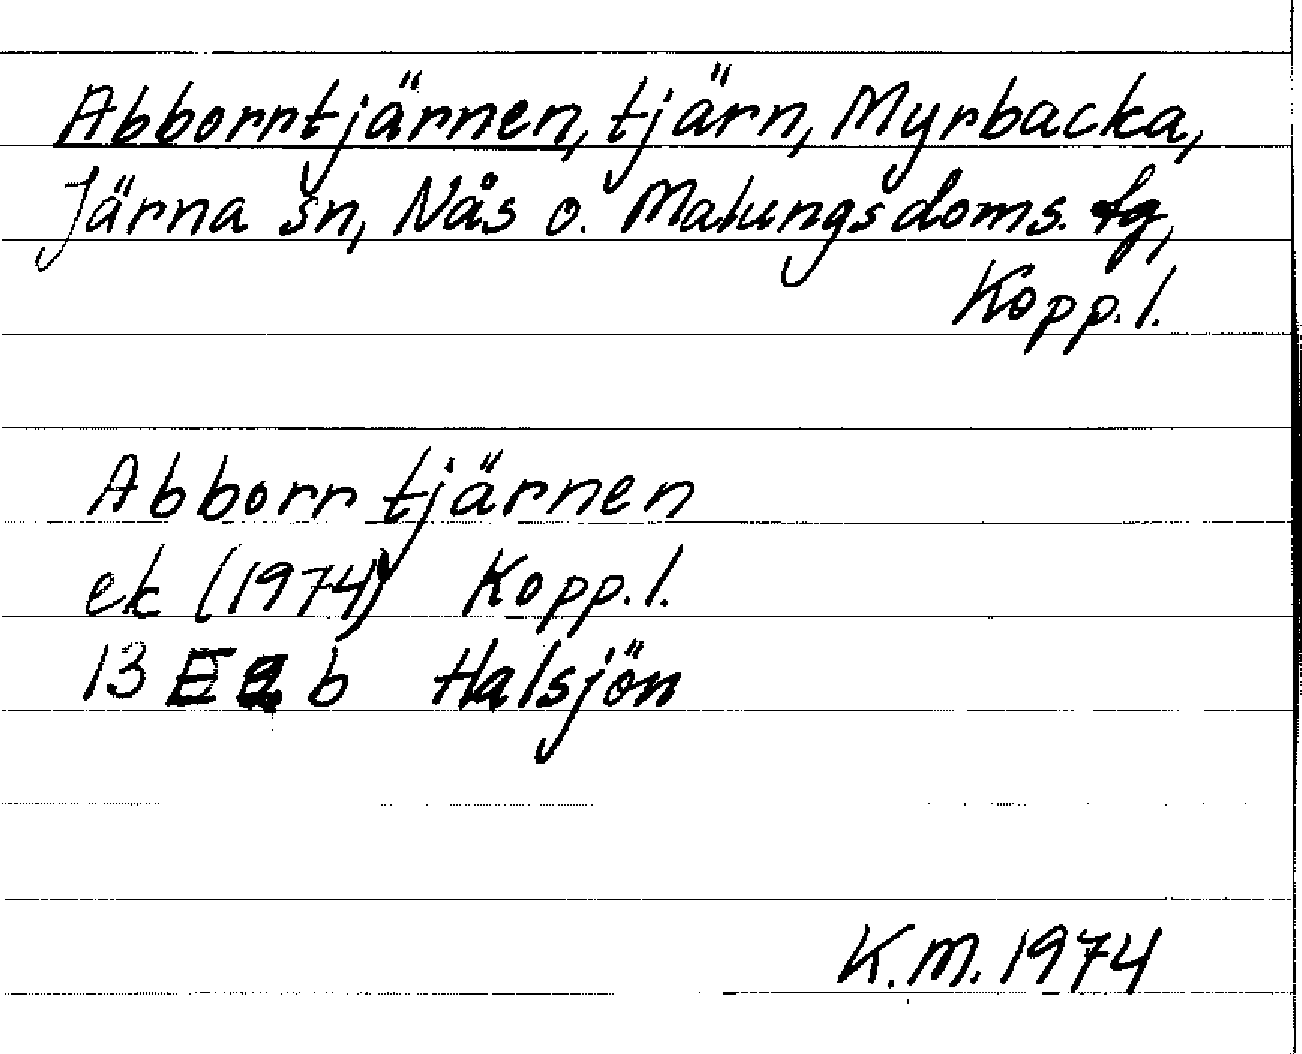 Abborrtjärnen, tjärn, Myrbacka,
Järna sn, Nås o. Malungs doms. tg,
Kopp. l.
Abborrtjärnen
ek (1974) Kopp. l.
13 E b Halsjön
K.M. 1974